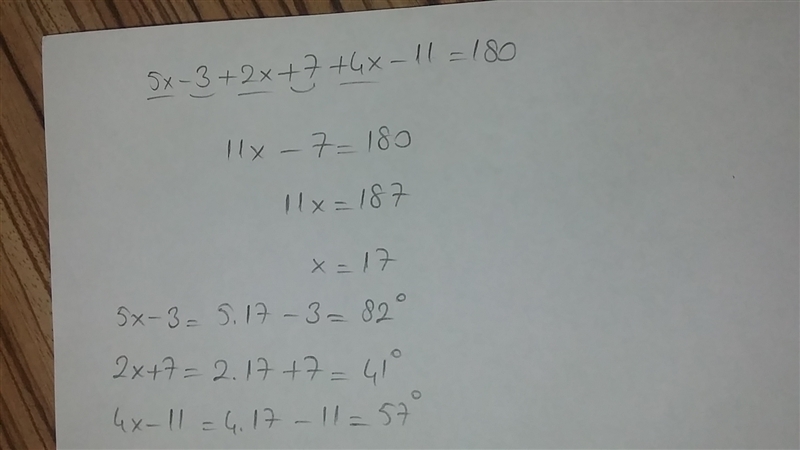 5x-3+2x+7+4x-11=180
11x-7=180
11x=187
x=17
5x-3=5.17-3=82°
2x+7=2.17+7=41°
4x-11=4.17-11=57°